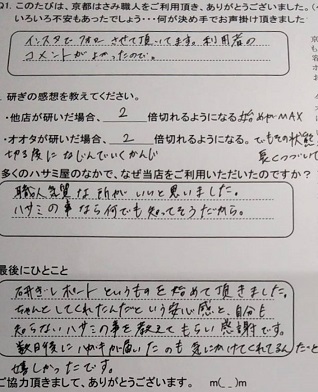 Q1. このたびは、京都はさみ職人をご利用頂き、ありがとうございました。
いろいろ不安もあったでしょう・・・何が決め手でお声掛け頂きました
インスタでフォローさせて頂いてます。利用者の
コメントがよかったので。
研ぎの感想を教えてください。
・他店が研いだ場合、2 倍切れるようになる。始めやMAX
・オオタが研いだ場合、2 倍切れるようになる。でもその状態
切る度になじんでいくかんじ 長くつづいて
多くのハサミ屋のなかで、なぜ当店をご利用いただいたのですか？
職人気質な所がいいと思いました。
ハサミの事なら何でも知ってそうだから。
最後にひとこと
研ぎレポートというものを始めて頂きました。
ちゃんとしてくれたんだという安心感と、自分も
知らないハサミの事を教えてもらい感謝です。
数日後にハガキが届いたのも気にかけてくれてるんだと
嬉しかったです。
ご協力頂きまして、ありがとうございます。 m(_ _)m